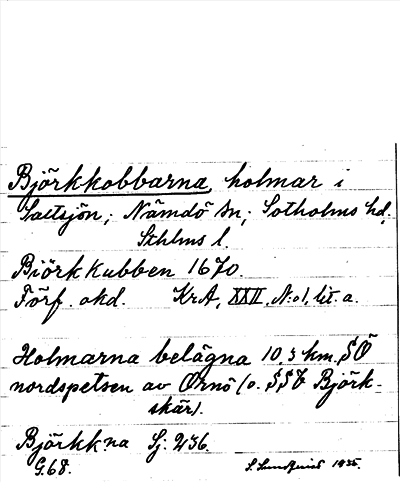 Björkkobbarna, holmar i
Saltsjön; Nämdö sn; Sotholms hd,
Sthlms l.
Biörk Kubben 1670.
Förf. okd. KrA, XXII, N:o 1, lit. a.
Holmarna belägna 10,3 km. SÖ
nordspetsen av Ornö (o. SSV Björk-
skär).
Björkk:na Sj. 236.
G.68. 1935.